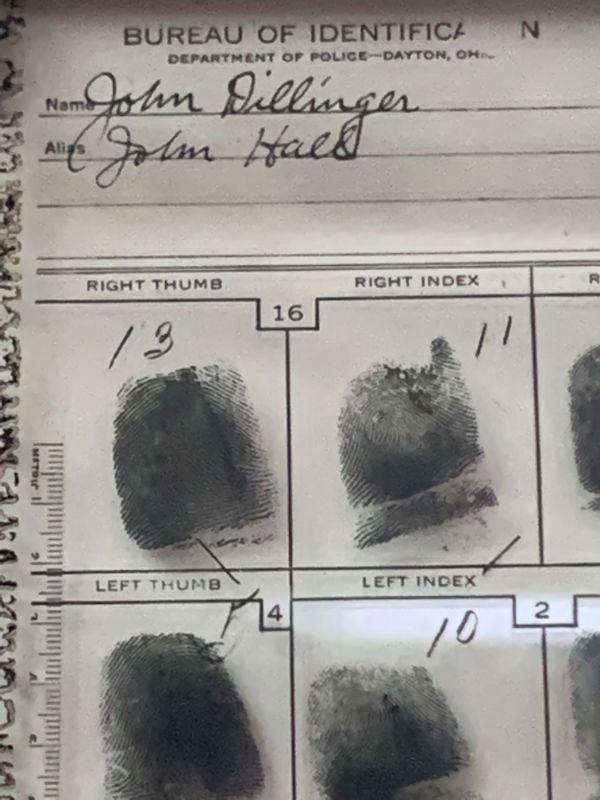 BUREAU OF IDENTIFICA N
DEPARTMENT OF POLICE—DAYTON, OH
Name John Dillinger
Alias John Hall
RIGHT THUMB
RIGHT INDEX
R
16
13
11
LEFT THUMB
LEFT INDEX
4
2
10